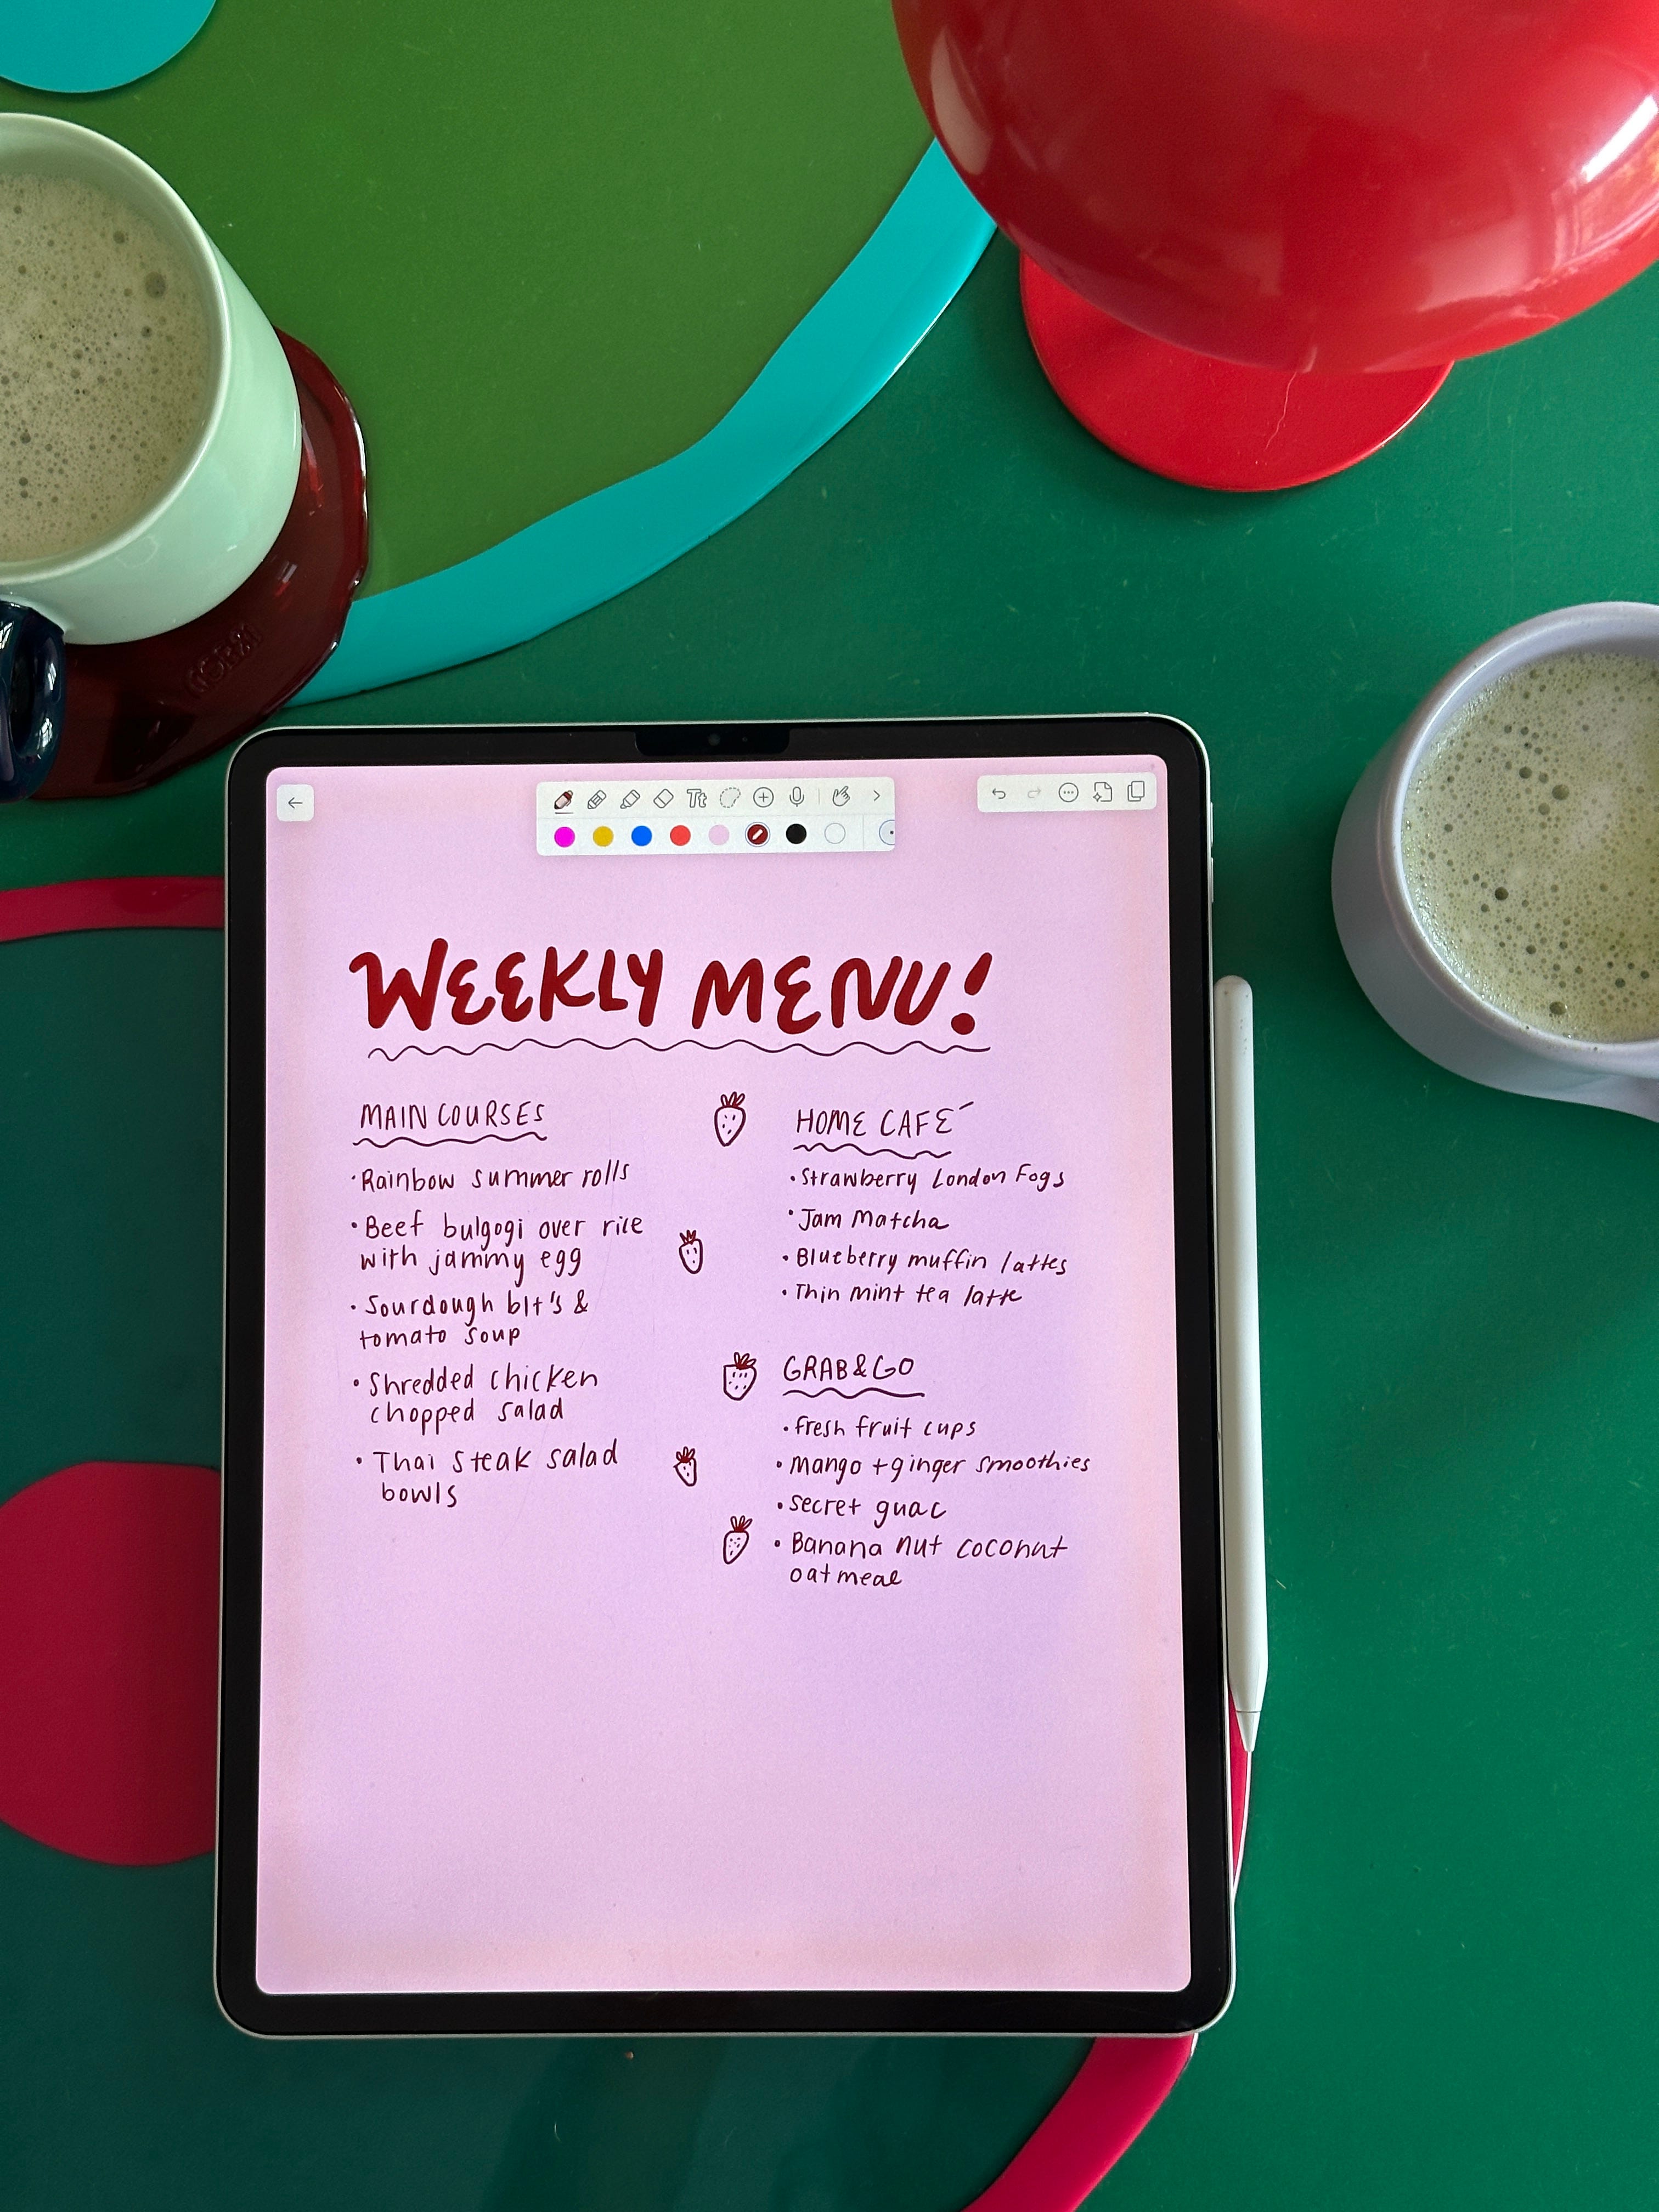 WEEKLY MENU!
MAIN COURSES
• Rainbow summer rolls
• Beef bulgogi over rice
with jammy egg
• Sourdough blt's &
tomato soup
• Shredded chicken
chopped salad
• Thai steak salad
bowls
HOME CAFÉ
• Strawberry London Fogs
• Jam Matcha
• Blueberry muffin lattes
• Thin mint tea latte
GRAB & GO
• fresh fruit cups
• Mango + ginger smoothies
• secret guac
• Banana nut coconut
oatmeal
Tt